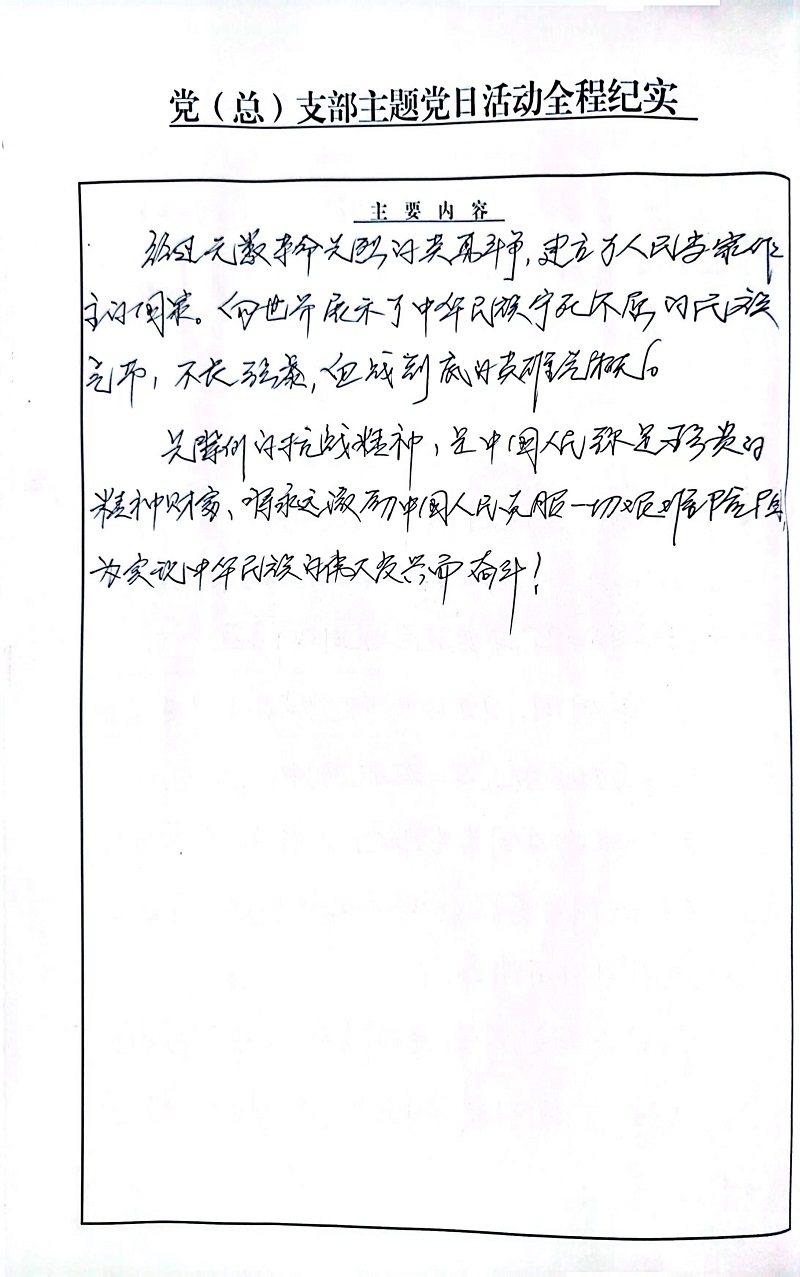 党（总）支部主题党日活动全程纪实
主要内容
经过无数革命先烈的英勇斗争，建立了人民当家作
主的国家。向世界展示了中华民族宁死不屈的民族
气节，不畏强暴，血战到底的英雄气概。
先辈们的抗战精神，是中国人民弥足珍贵的
精神财富、将永远激励中国人民克服一切艰难险阻
为实现中华民族的伟大复兴而奋斗！